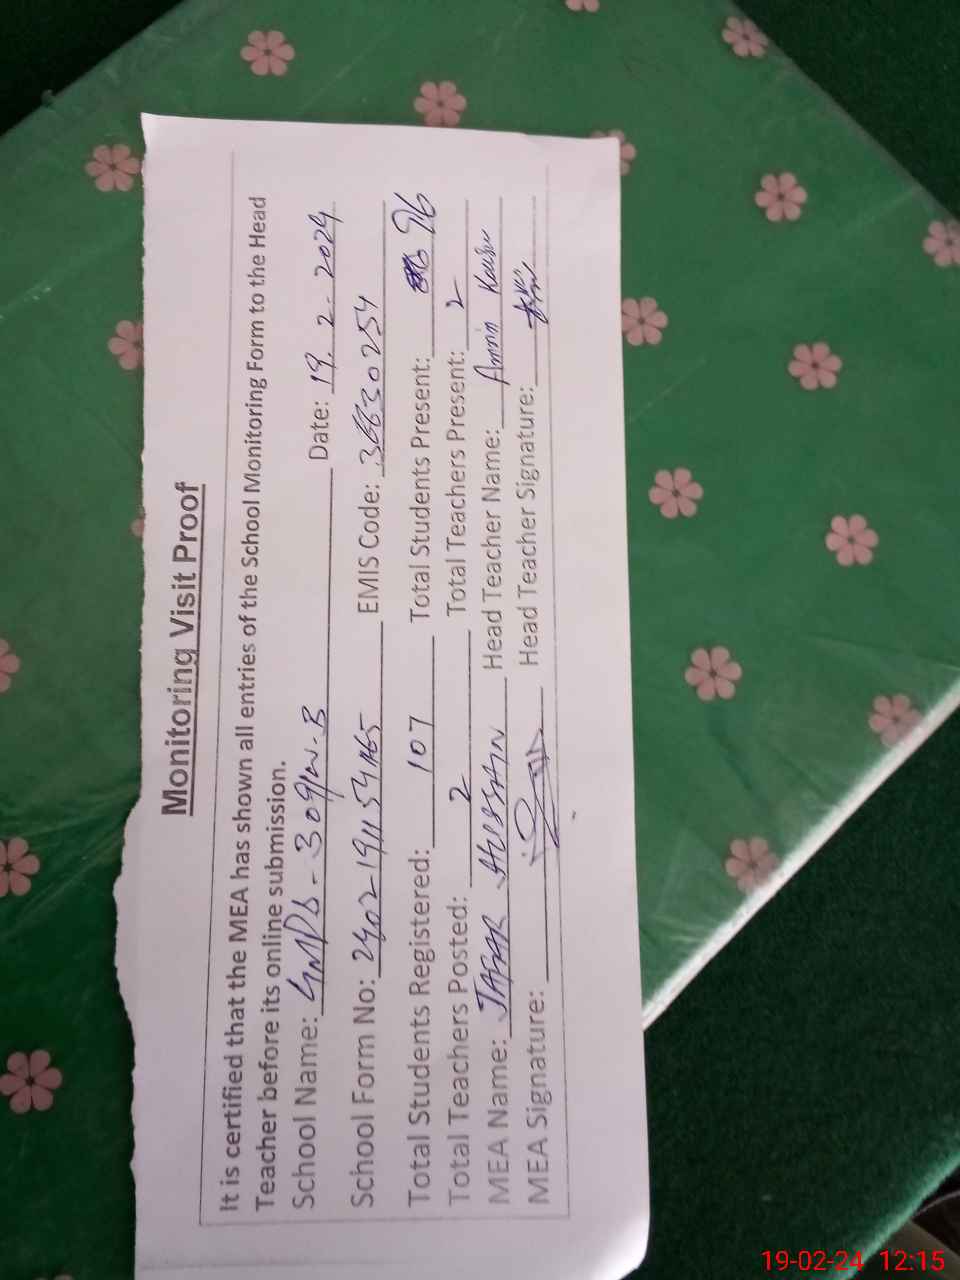 Monitoring Visit Proof
It is certified that the MEA has shown all entries of the School Monitoring Form to the Head
Teacher before its online submission.
School Name: GMPS - 309/W.B Date: 19. 2. 2024
School Form No: EMIS Code: 36630254
Total Students Registered: 107 Total Students Present: 96
Total Teachers Posted: 2 Total Teachers Present: 2
MEA Name: JAFAR HUSSAIN Head Teacher Name:
MEA Signature: Head Teacher Signature:
19-02-24 12:15